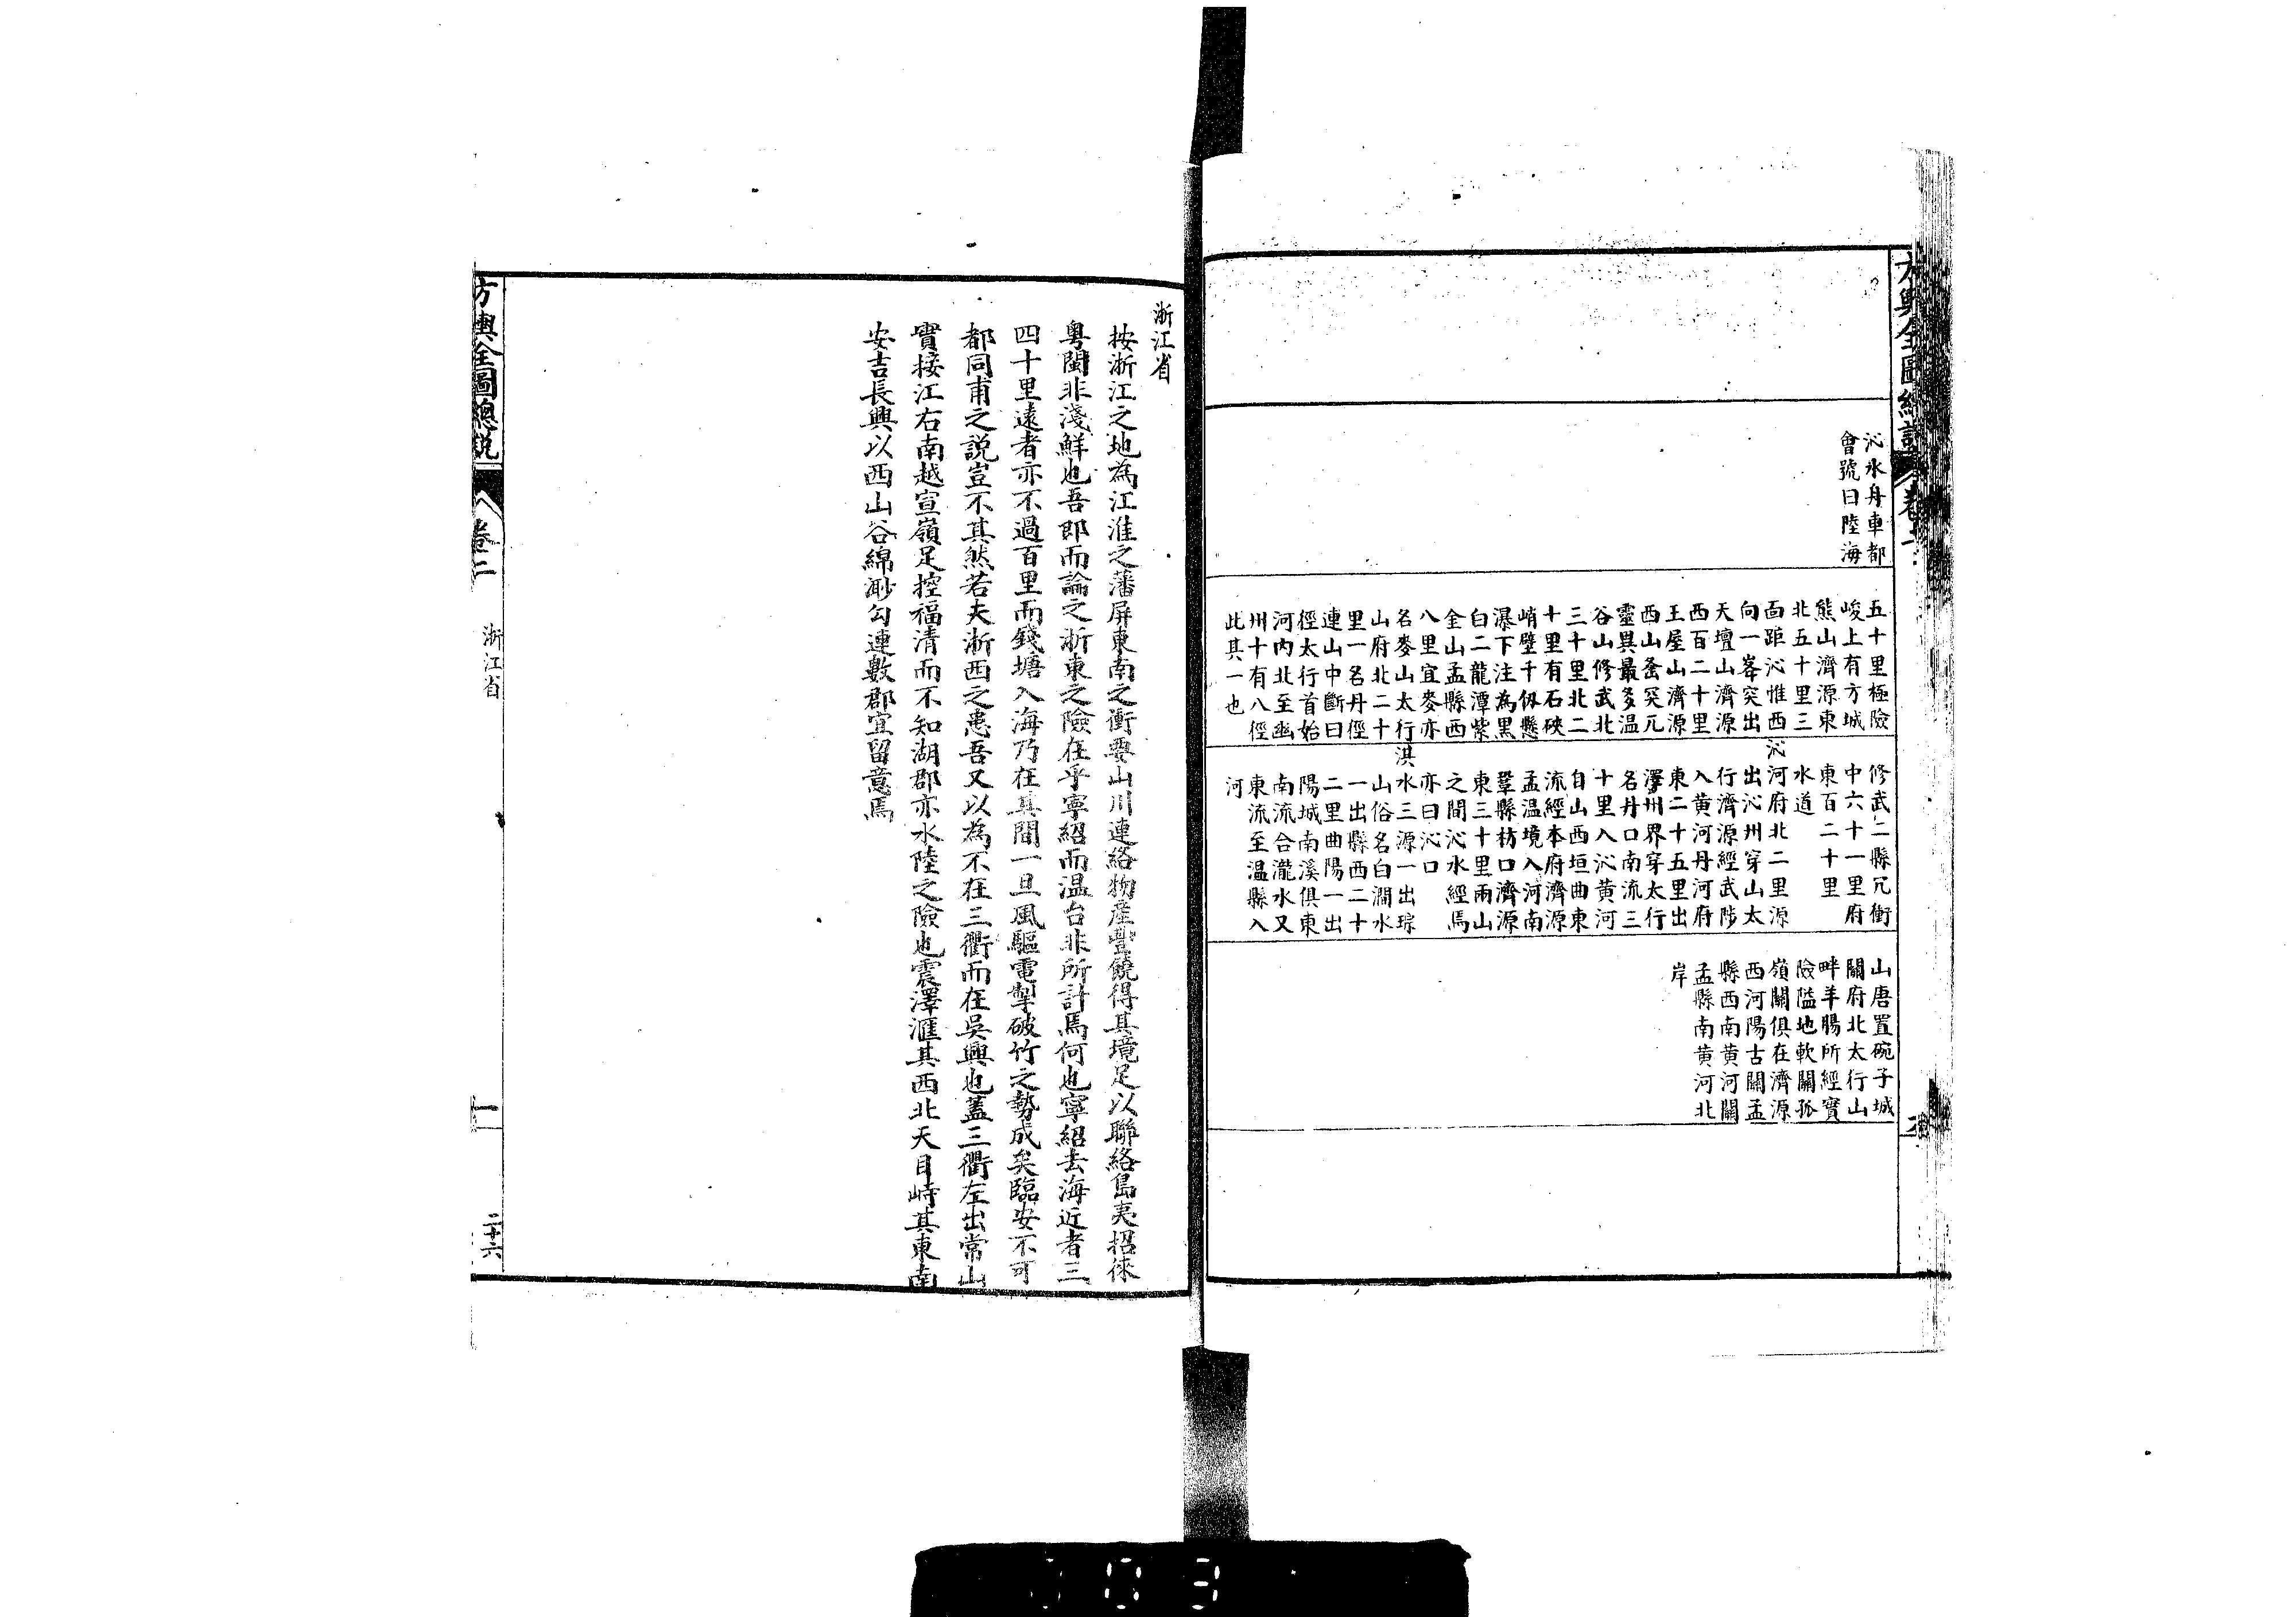 方輿全圖總說
卷二
沁水舟車都
會號曰陸海
五十里極險
峻上有方城
熊山濟源東
北五十里三
面距沁惟西
向一峯突出
天壇山濟源
西百二十里
王屋山濟源
西山夆突兀
靈異最多溫
谷山修武北
三十里北二
十里有石硤
峭壁千仞懸
瀑下注為黑
白二龍潭紫
金山孟縣西
八里宜麥亦
名麥山太行
山府北二十
里一名丹徑
連山中斷曰
徑太行首始
河內北至幽
州十有八徑
此其一也
修武二縣冗衝
中六十一里府
東百二十里
水道
沁河府北二里源
出沁州穿山太
行濟源經武陟
入黃河丹河府
東二十五里出
澤州界穿太行
名丹口南流三
十里入沁黃河
自山西垣曲東
流經本府濟源
孟溫境入河南
鞏縣枋口濟源
東三十里兩山
之間沁水經焉
亦曰沁口
淇水三源一出琮
山俗名白澗水
一出縣西二十
二里曲陽一出
陽城南溪俱東
南流合瀧水又
東流至溫縣入
河
山唐置碗子城
關府北太行山
畔羊腸所經實
險隘地軟關孤
嶺關俱在濟源
西河陽古關孟
縣西南黃河關
孟縣南黃河北
岸
浙江省
按浙江之地為江淮之藩屏東南之衝要山川連絡物產豐饒得其境足以聯絡島夷招徠
粤閩非淺鮮也吾郎而論之浙東之險在乎寧紹而温台非所計焉何也寧紹去海近者三
四十里遠者亦不過百里而錢塘入海乃在其間一旦風驅電掣破竹之勢成矣臨安不可
都同甫之說豈不其然若夫浙西之患吾又以為不在三衢而在吳興也蓋三衢左出常山
實接江右南越宣嶺足控福清而不知湖郡亦水陸之險也震澤滙其西北天目峙其東南
安吉長興以西山谷綿渺勾連數郡宜留意焉
方輿全圖總說
卷二
浙江省
一
二十六